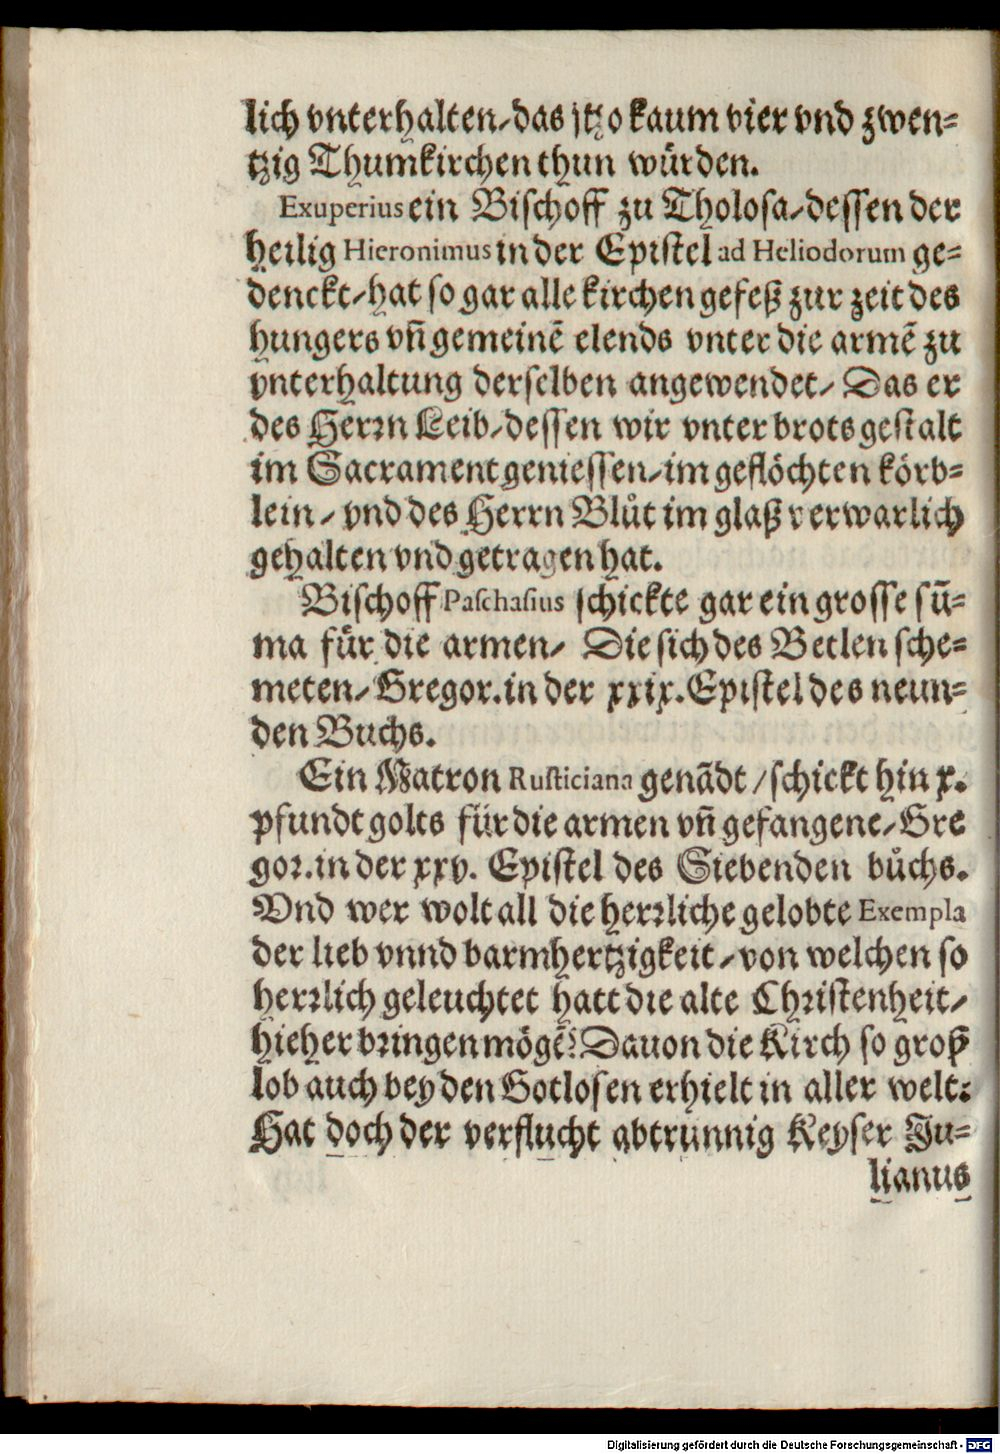 lich vnterhalten/das jtzo kaum vier vnd zwen=
tzig Thumkirchen thun wuͤrden.
Exuperius ein Bischoff zu Tholosa/dessen der
heilig Hieronimus in der Epistel ad Heliodorum ge=
denckt/hat so gar alle kirchen gefeß zur zeit des
hungers vñ gemeinẽ elends vnter die armẽ zu
vnterhaltung derselben angewendet/ Das er
des Herrn Leib/dessen wir vnter brots gestalt
im Sacrament geniessen/im geflöchten körb=
lein/ vnd des Herrn Bluͦt im glaß verwarlich
gehalten vnd getragen hat.
Bischoff Paschasius schickte gar ein grosse sũ=
ma fuͤr die armen/ Die sich des Betlen sche=
meten/Gregor.in der xxix.Epistel des neun=
den Buchs.
Ein Matron Rusticiana genãdt/schickt hin x.
pfundt golts fuͤr die armen vñ gefangene/Gre
gor.in der xxv. Epistel des Siebenden buͦchs.
Vnd wer wolt all die herrliche gelobte Exempla
der lieb vnnd barmhertzigkeit/von welchen so
herrlich geleuchtet hatt die alte Christenheit/
hieher bringen mögẽ? Dauon die Kirch so groß
lob auch bey den Gotlosen erhielt in aller welt:
Hat doch der verflucht abtrunnig Keyser Ju=
lianus
Digitalisierung gefördert durch die Deutsche Forschungsgemeinschaft - DFG